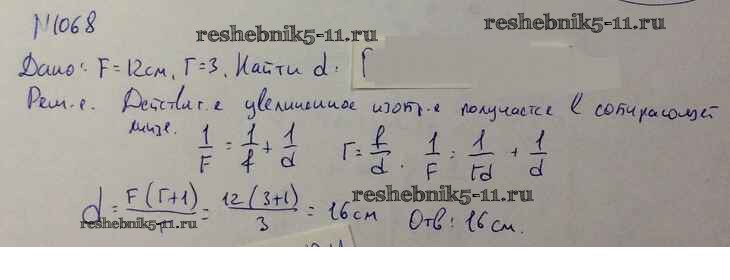 N1068
reshebnik5-11.ru
Дано: F=12см, Г=3. Найти d.
Реш-е. Действит-е увеличенное изобр-е получается в собирающей
линзе. 1/F = 1/f + 1/d Г = f/d. 1/F = 1/Гd + 1/d
reshebnik5-11.ru
d = F(Г+1)/Г = 12(3+1)/3 = 16см Отв: 16см.
reshebnik5-11.ru